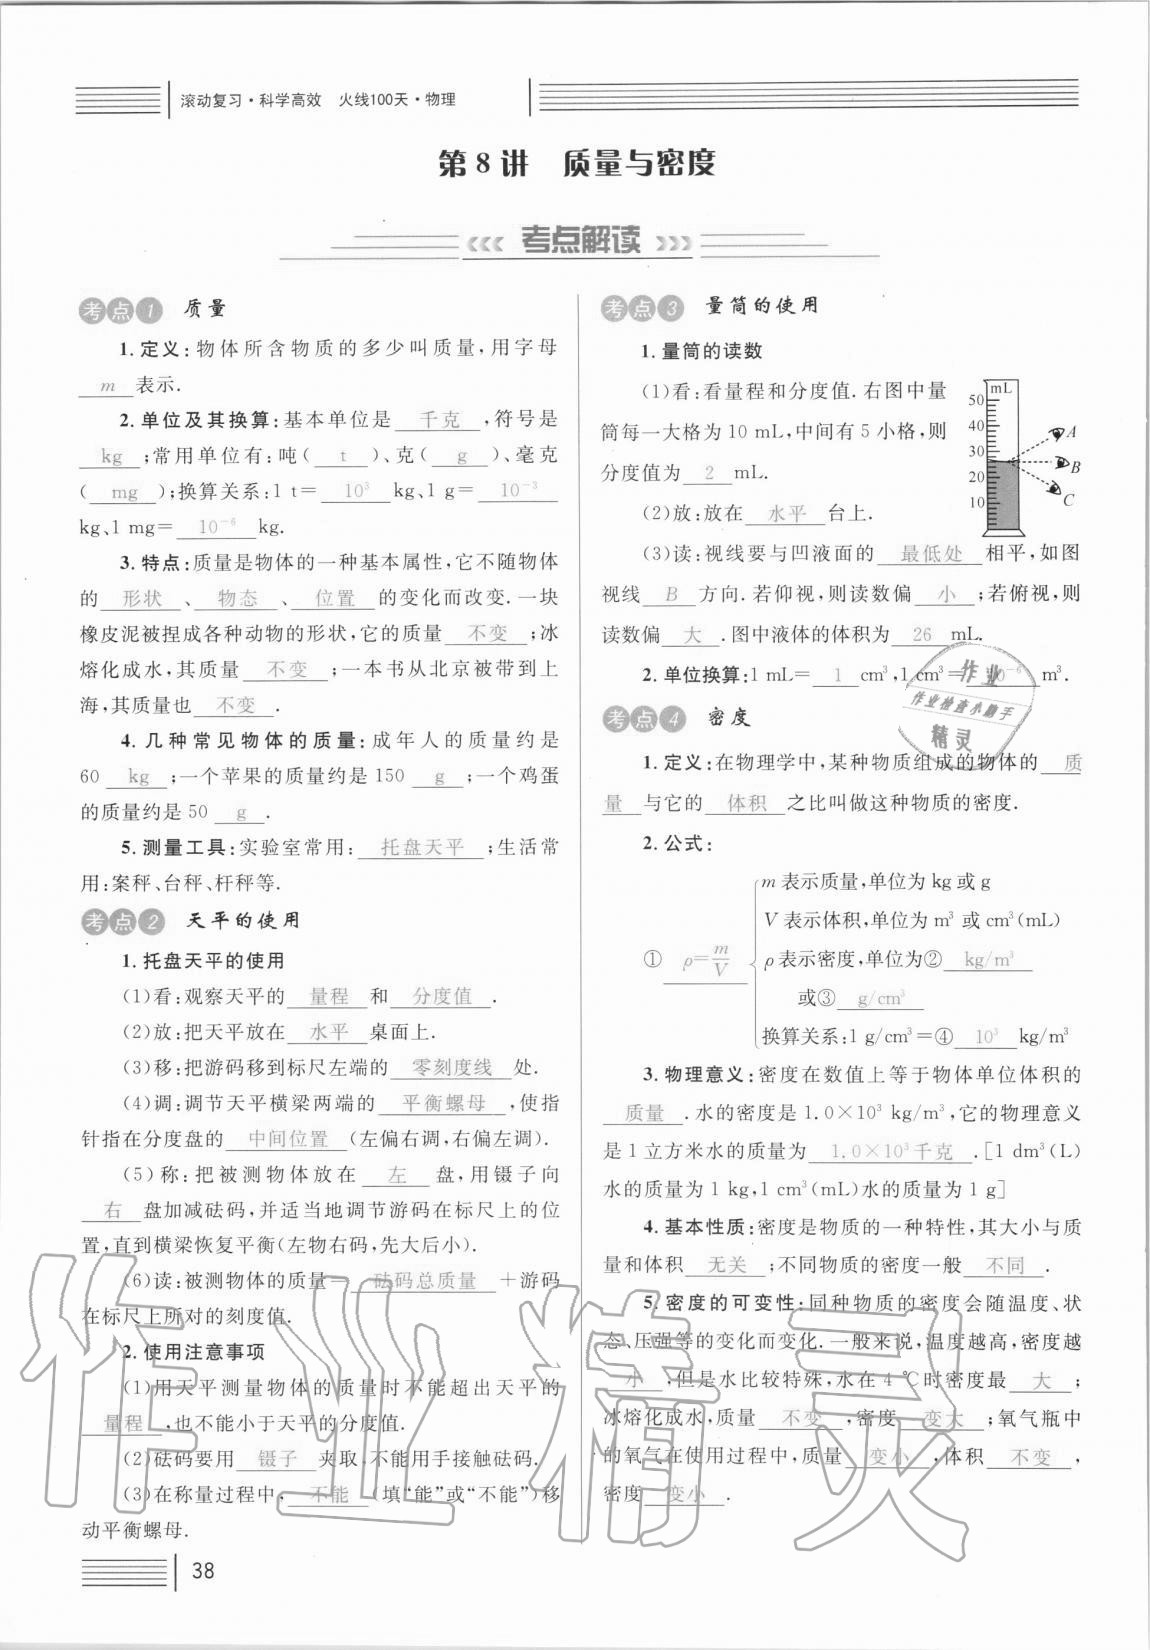 滚动复习·科学高效　火线100天·物理
第 8 讲　质量与密度
考点解读
考点1　质量
1. 定义:物体所含物质的多少叫质量,用字母
m 表示.
2. 单位及其换算:基本单位是 千克 ,符号是
kg ;常用单位有:吨( t )、克( g )、毫克
( mg );换算关系:1 t= 10³ kg、1 g= 10⁻³
kg、1 mg= 10⁻⁶ kg.
3. 特点:质量是物体的一种基本属性,它不随物体
的 形状 、 物态 、 位置 的变化而改变. 一块
橡皮泥被捏成各种动物的形状,它的质量 不变 ;冰
熔化成水,其质量 不变 ;一本书从北京被带到上
海,其质量也 不变 .
4. 几种常见物体的质量:成年人的质量约是
60 kg ;一个苹果的质量约是 150 g ;一个鸡蛋
的质量约是 50 g .
5. 测量工具:实验室常用: 托盘天平 ;生活常
用:案秤、台秤、杆秤等.
考点2　天平的使用
1. 托盘天平的使用
(1)看:观察天平的 量程 和 分度值 .
(2)放:把天平放在 水平 桌面上.
(3)移:把游码移到标尺左端的 零刻度线 处.
(4)调:调节天平横梁两端的 平衡螺母 ,使指
针指在分度盘的 中间位置 (左偏右调,右偏左调).
(5)称:把被测物体放在 左 盘,用镊子向
右 盘加减砝码,并适当地调节游码在标尺上的位
置,直到横梁恢复平衡(左物右码,先大后小).
(6)读:被测物体的质量= 砝码总质量 +游码
在标尺上所对的刻度值.
2. 使用注意事项
(1)用天平测量物体的质量时不能超出天平的
量程 ,也不能小于天平的分度值.
(2)砝码要用 镊子 夹取,不能用手接触砝码.
(3)在称量过程中, 不能 (填“能”或“不能”)移
动平衡螺母.
38
考点3　量筒的使用
1. 量筒的读数
(1)看:看量程和分度值. 右图中量
筒每一大格为 10 mL,中间有 5 小格,则
分度值为 2 mL.
(2)放:放在 水平 台上.
(3)读:视线要与凹液面的 最低处 相平,如图
视线 B 方向. 若仰视,则读数偏 小 ;若俯视,则
读数偏 大 . 图中液体的体积为 26 mL.
mL
50
40
30
20
10
A
B
C
2. 单位换算:1 mL= 1 cm³,1 cm³= 10⁻⁶ m³.
作业
作业检查小助手
精灵
考点4　密度
1. 定义:在物理学中,某种物质组成的物体的 质
量 与它的 体积 之比叫做这种物质的密度.
2. 公式:
① ρ=m/V
m 表示质量,单位为 kg 或 g
V 表示体积,单位为 m³ 或 cm³(mL)
ρ 表示密度,单位为② kg/m³
或③ g/cm³
换算关系:1 g/cm³=④ 10³ kg/m³
3. 物理意义:密度在数值上等于物体单位体积的
质量 . 水的密度是 1.0×10³ kg/m³,它的物理意义
是 1 立方米水的质量为 1.0×10³千克 .[1 dm³(L)
水的质量为 1 kg,1 cm³(mL)水的质量为 1 g]
4. 基本性质:密度是物质的一种特性,其大小与质
量和体积 无关 ;不同物质的密度一般 不同 .
5. 密度的可变性:同种物质的密度会随温度、状
态、压强等的变化而变化. 一般来说,温度越高,密度越
小 ,但是水比较特殊,水在 4 ℃时密度最 大 ;
冰熔化成水,质量 不变 ,密度 变大 ;氧气瓶中
的氧气在使用过程中,质量 变小 ,体积 不变 ,
密度 变小 .
作业精灵